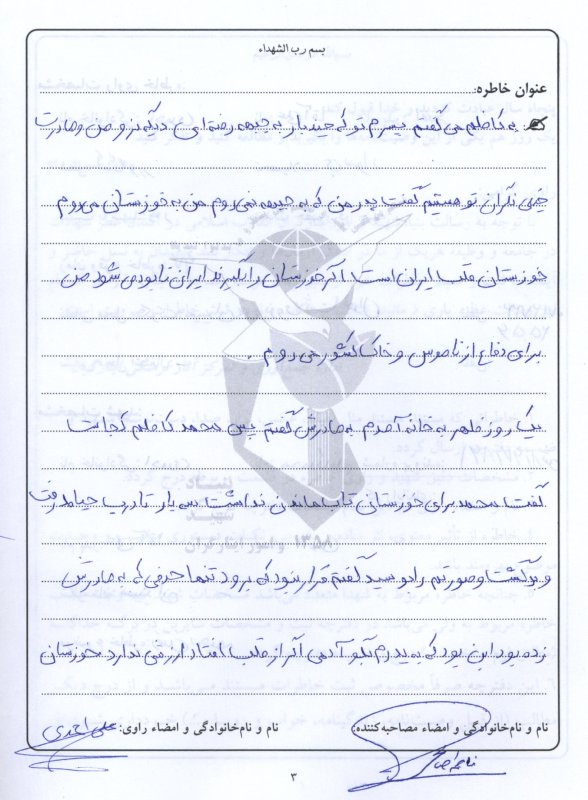 بسم رب الشهداء
عنوان خاطره:
به کاظم می گفتم پسرم تو که چند بار به جبهه رفته ای دیگه نرو من و مادرت
خیلی نگران تو هستیم گفت پدر من که به جبهه نمی روم من به خوزستان می روم
خوزستان قلب ایران است اگر خوزستان را بگیرند ایران نابود می شود من
برای دفاع از ناموس و خاک کشور می روم .
یک روز ظهر به خانه آمدم به مادرش گفتم پس محمد کاظم کجاست
گفت محمد برای خوزستان تاب ماندن نداشت سه بار تا درب حیاط رفت
و برگشت و صورتم را بوسید گفتم قرار نبود که برود تنها حرفی که به مادرش
زده بود این بود که به پدرم بگو آدمی اگر از قلب افتاد ارزشی ندارد خوزستان
نام و نام‌خانوادگی و امضاء مصاحبه‌کننده:
نام و نام‌خانوادگی و امضاء راوی: علی احمدی
بنیاد
شهید
و امور ایثارگران
۱۳۵۸
۳